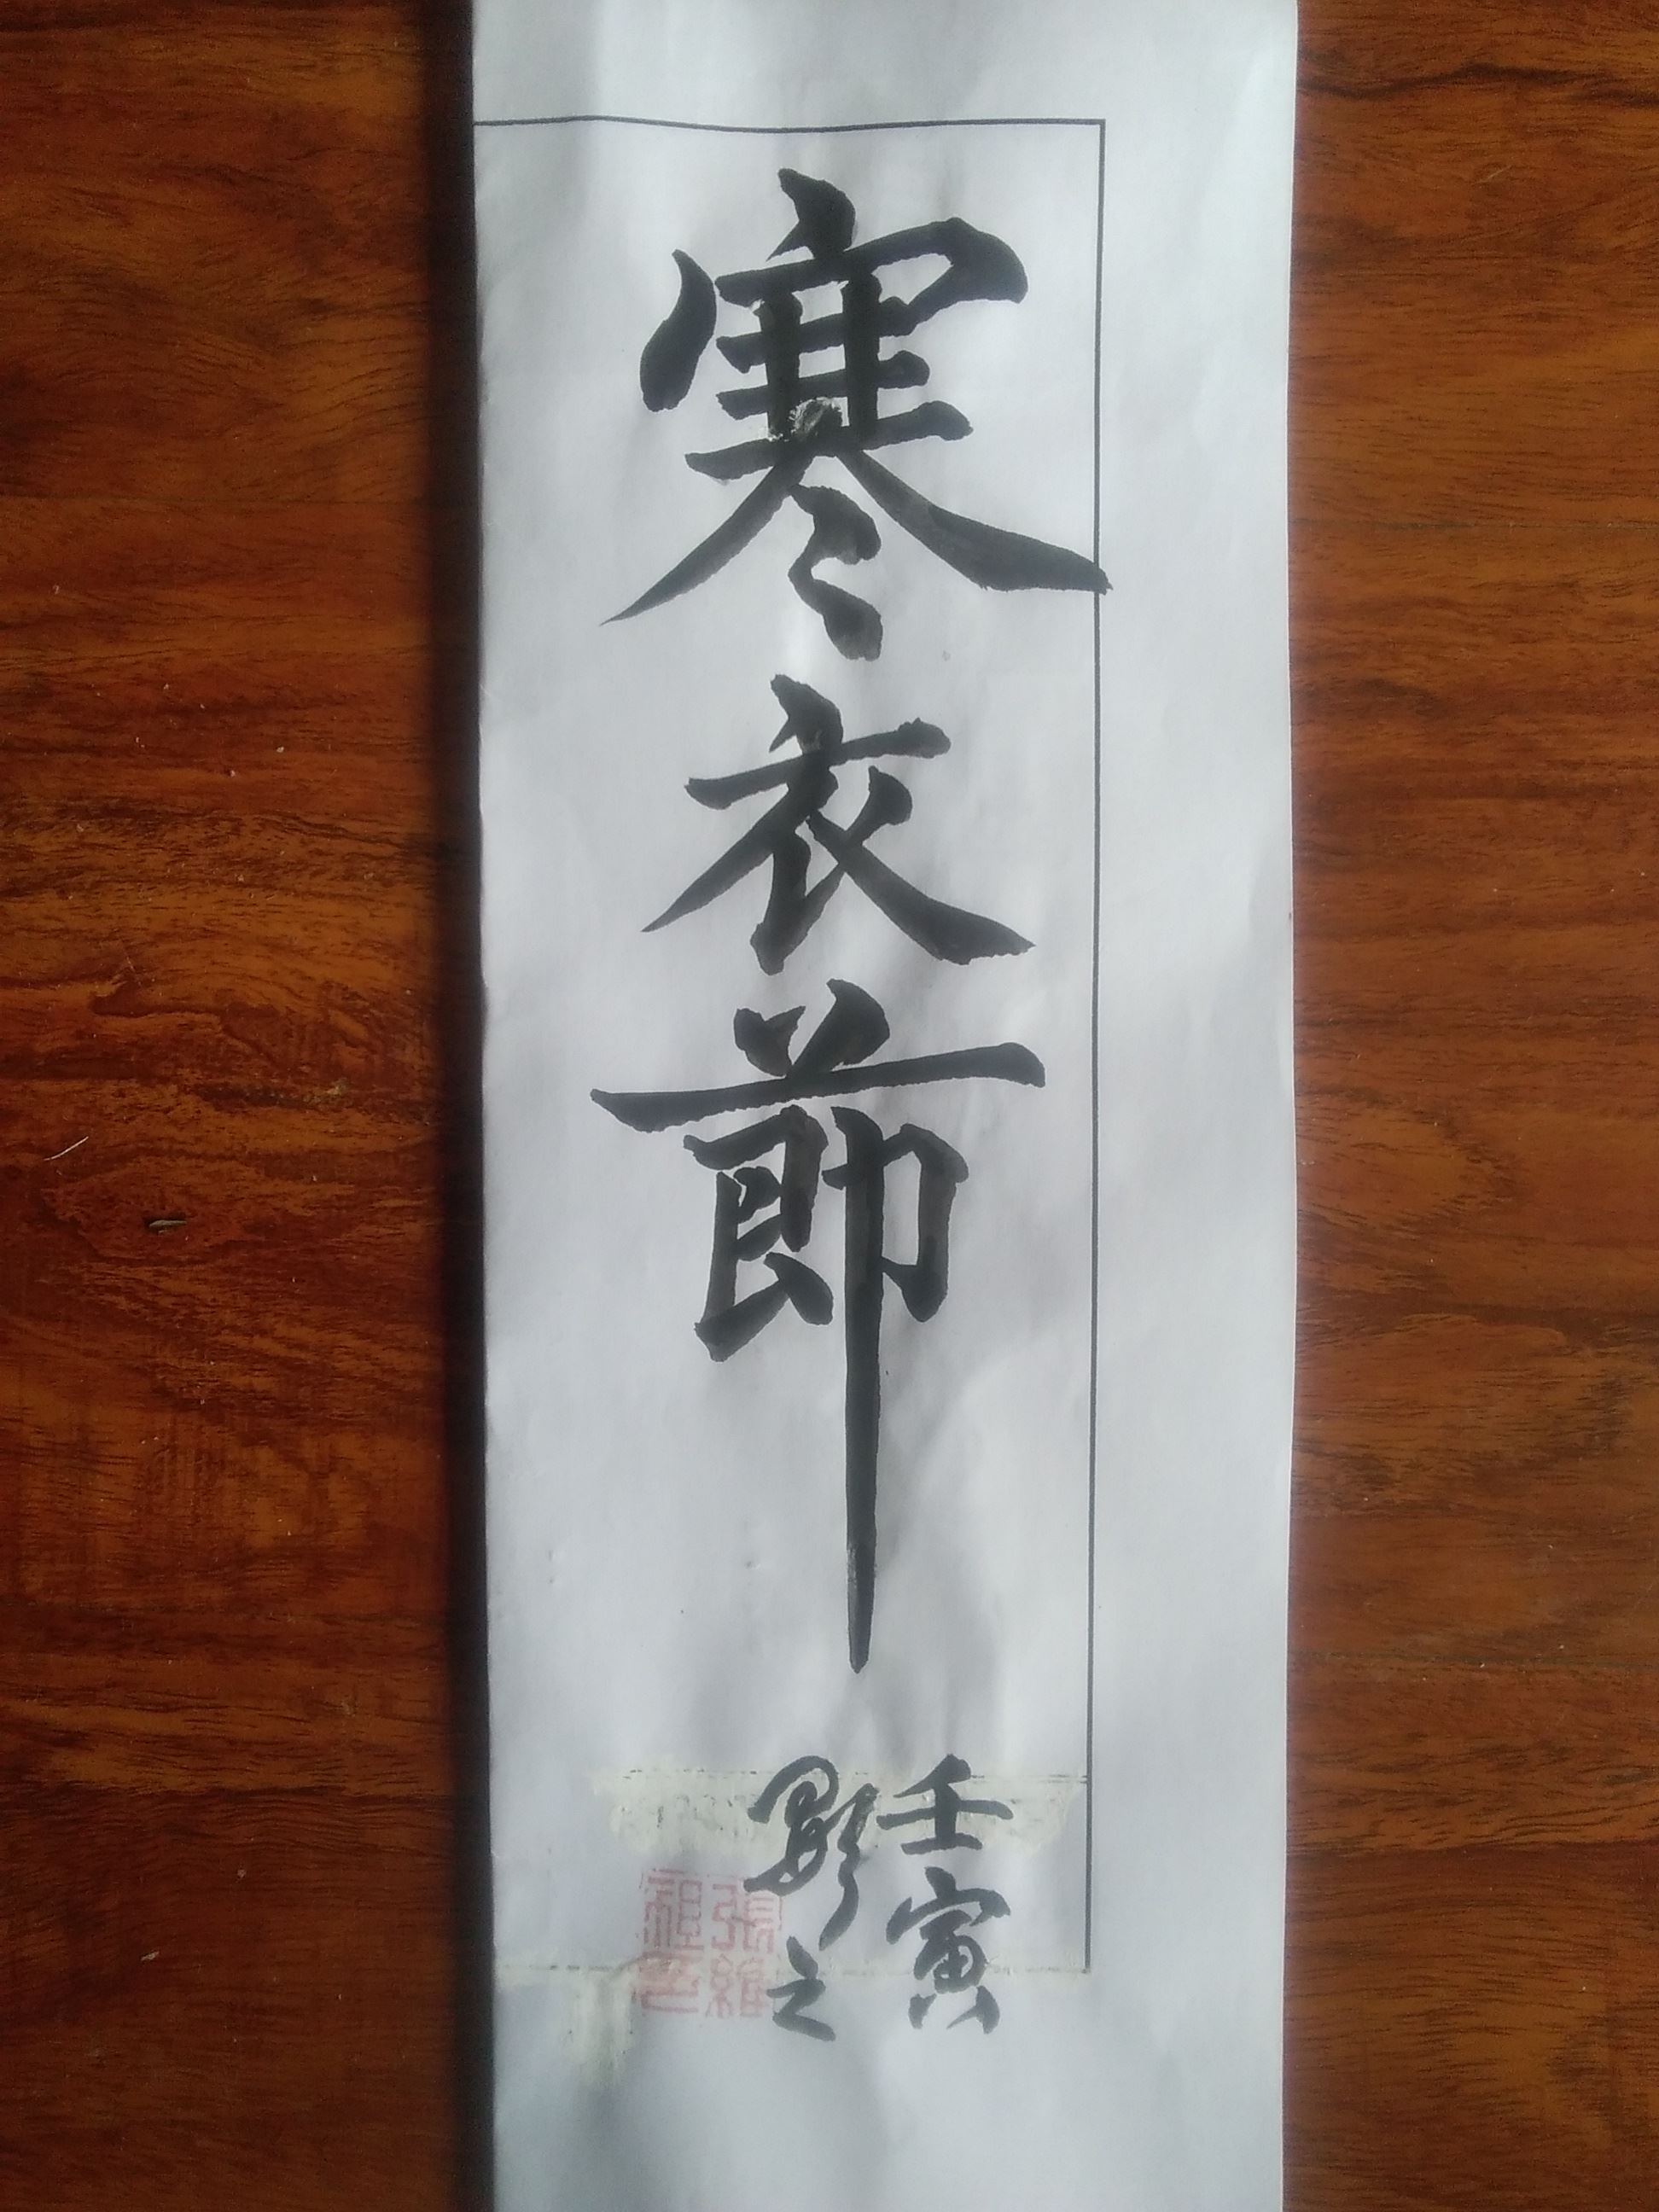 寒衣節
壬寅
顯之
張維
祖印